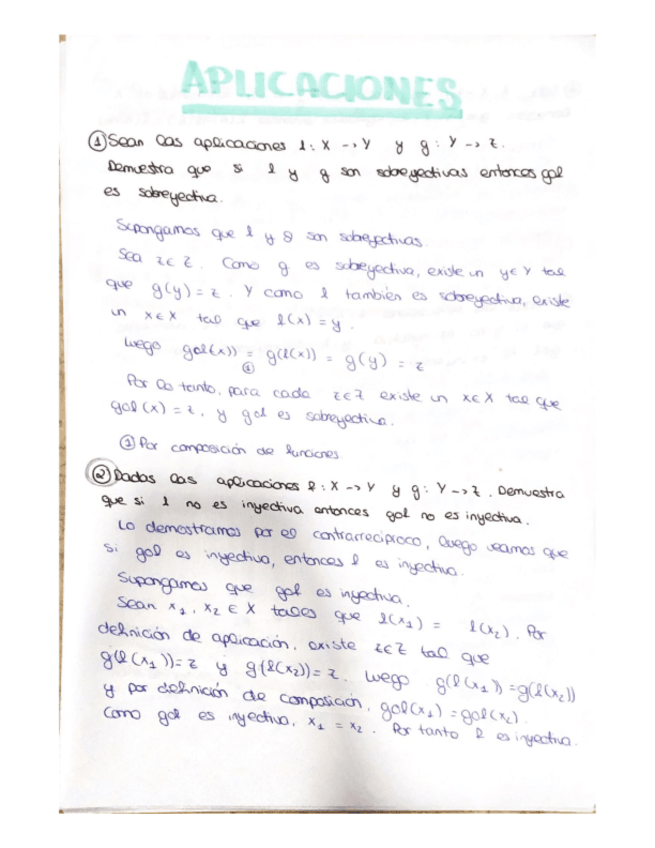 APLICACIONES
① Sean las aplicaciones f: X -> Y y g: Y -> Z.
Demuestra que si f y g son sobreyectivas entonces gof
es sobreyectiva.
Supongamos que f y g son sobreyectivas.
Sea z ∈ Z. Como g es sobreyectiva, existe un y ∈ Y tal
que g(y) = z. Y como f también es sobreyectiva, existe
un x ∈ X tal que f(x) = y.
Luego gof(x)) = g(f(x)) = g(y) = z
①
Por lo tanto, para cada z ∈ Z existe un x ∈ X tal que
gof(x) = z, y gof es sobreyectiva.
① Por composición de funciones
② Dadas las aplicaciones f: X -> Y y g: Y -> Z. Demuestra
que si f no es inyectiva entonces gof no es inyectiva.
Lo demostramos por el contrarrecíproco, luego veamos que
si gof es inyectiva, entonces f es inyectiva.
Supongamos que gof es inyectiva.
Sean x₁, x₂ ∈ X tales que f(x₁) = f(x₂). Por
definición de aplicación, existe z ∈ Z tal que
g(f(x₁)) = z y g(f(x₂)) = z. Luego g(f(x₁)) = g(f(x₂))
y por definición de composición, gof(x₁) = gof(x₂).
Como gof es inyectiva, x₁ = x₂. Por tanto f es inyectiva.